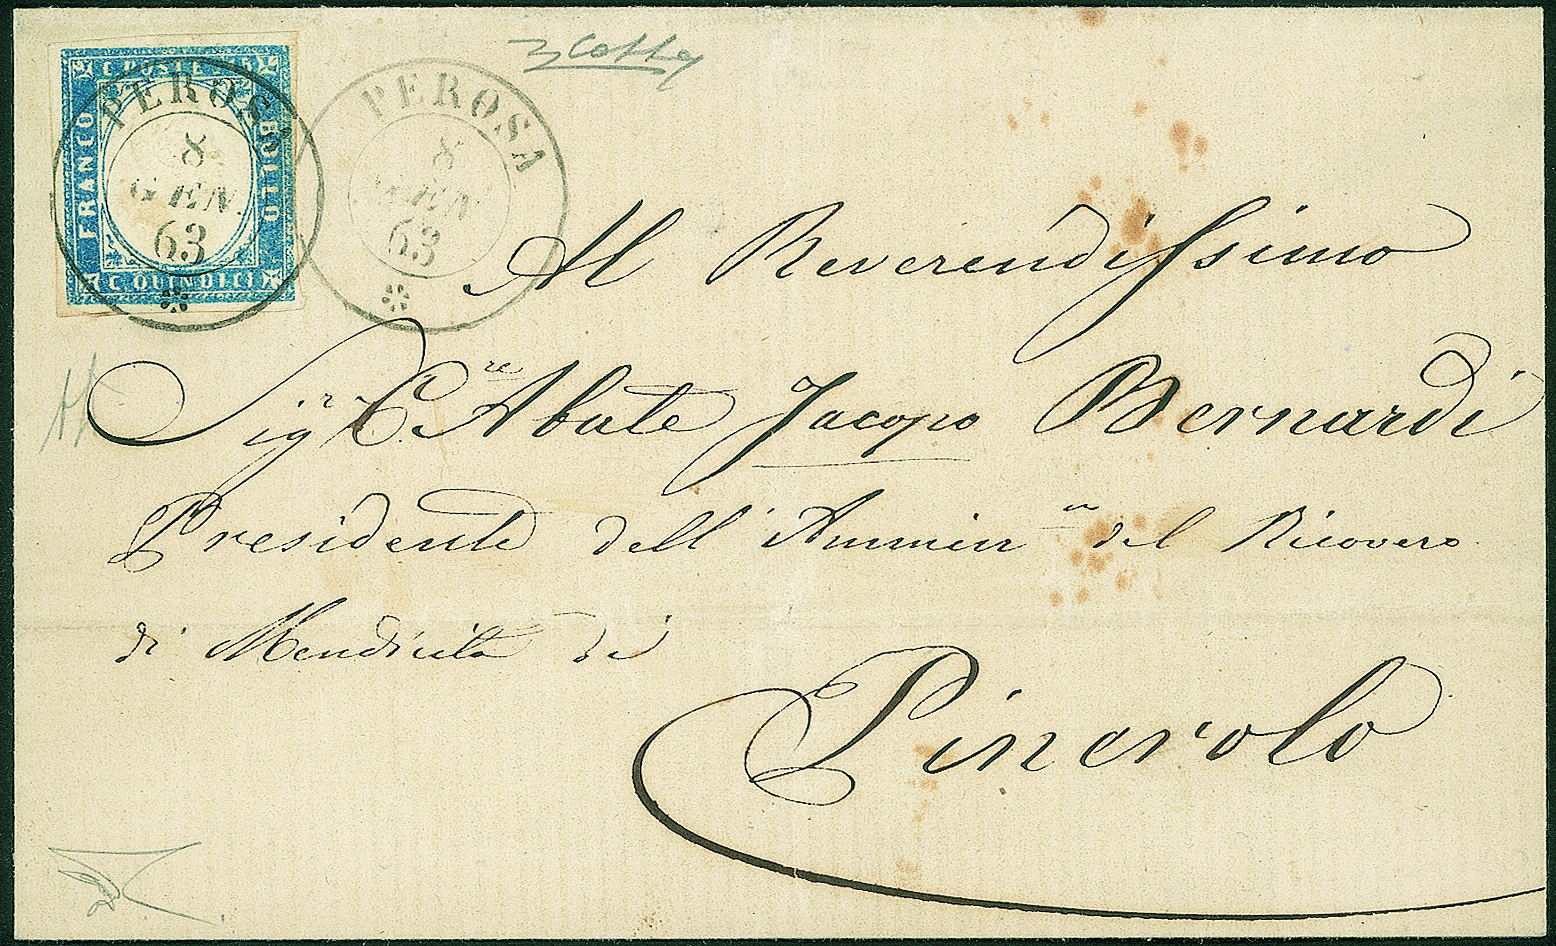 C. POSTE 15
FRANCO
BOLLO
C. QUINDICI
PEROSA
8
GEN.
63
PEROSA
8
GEN
63
Al Reverendissimo
Sig.r C.re Abate Jacopo Bernardi
Presidente dell'Ammin.n del Ricovero
di Mendicità di
Pinerolo